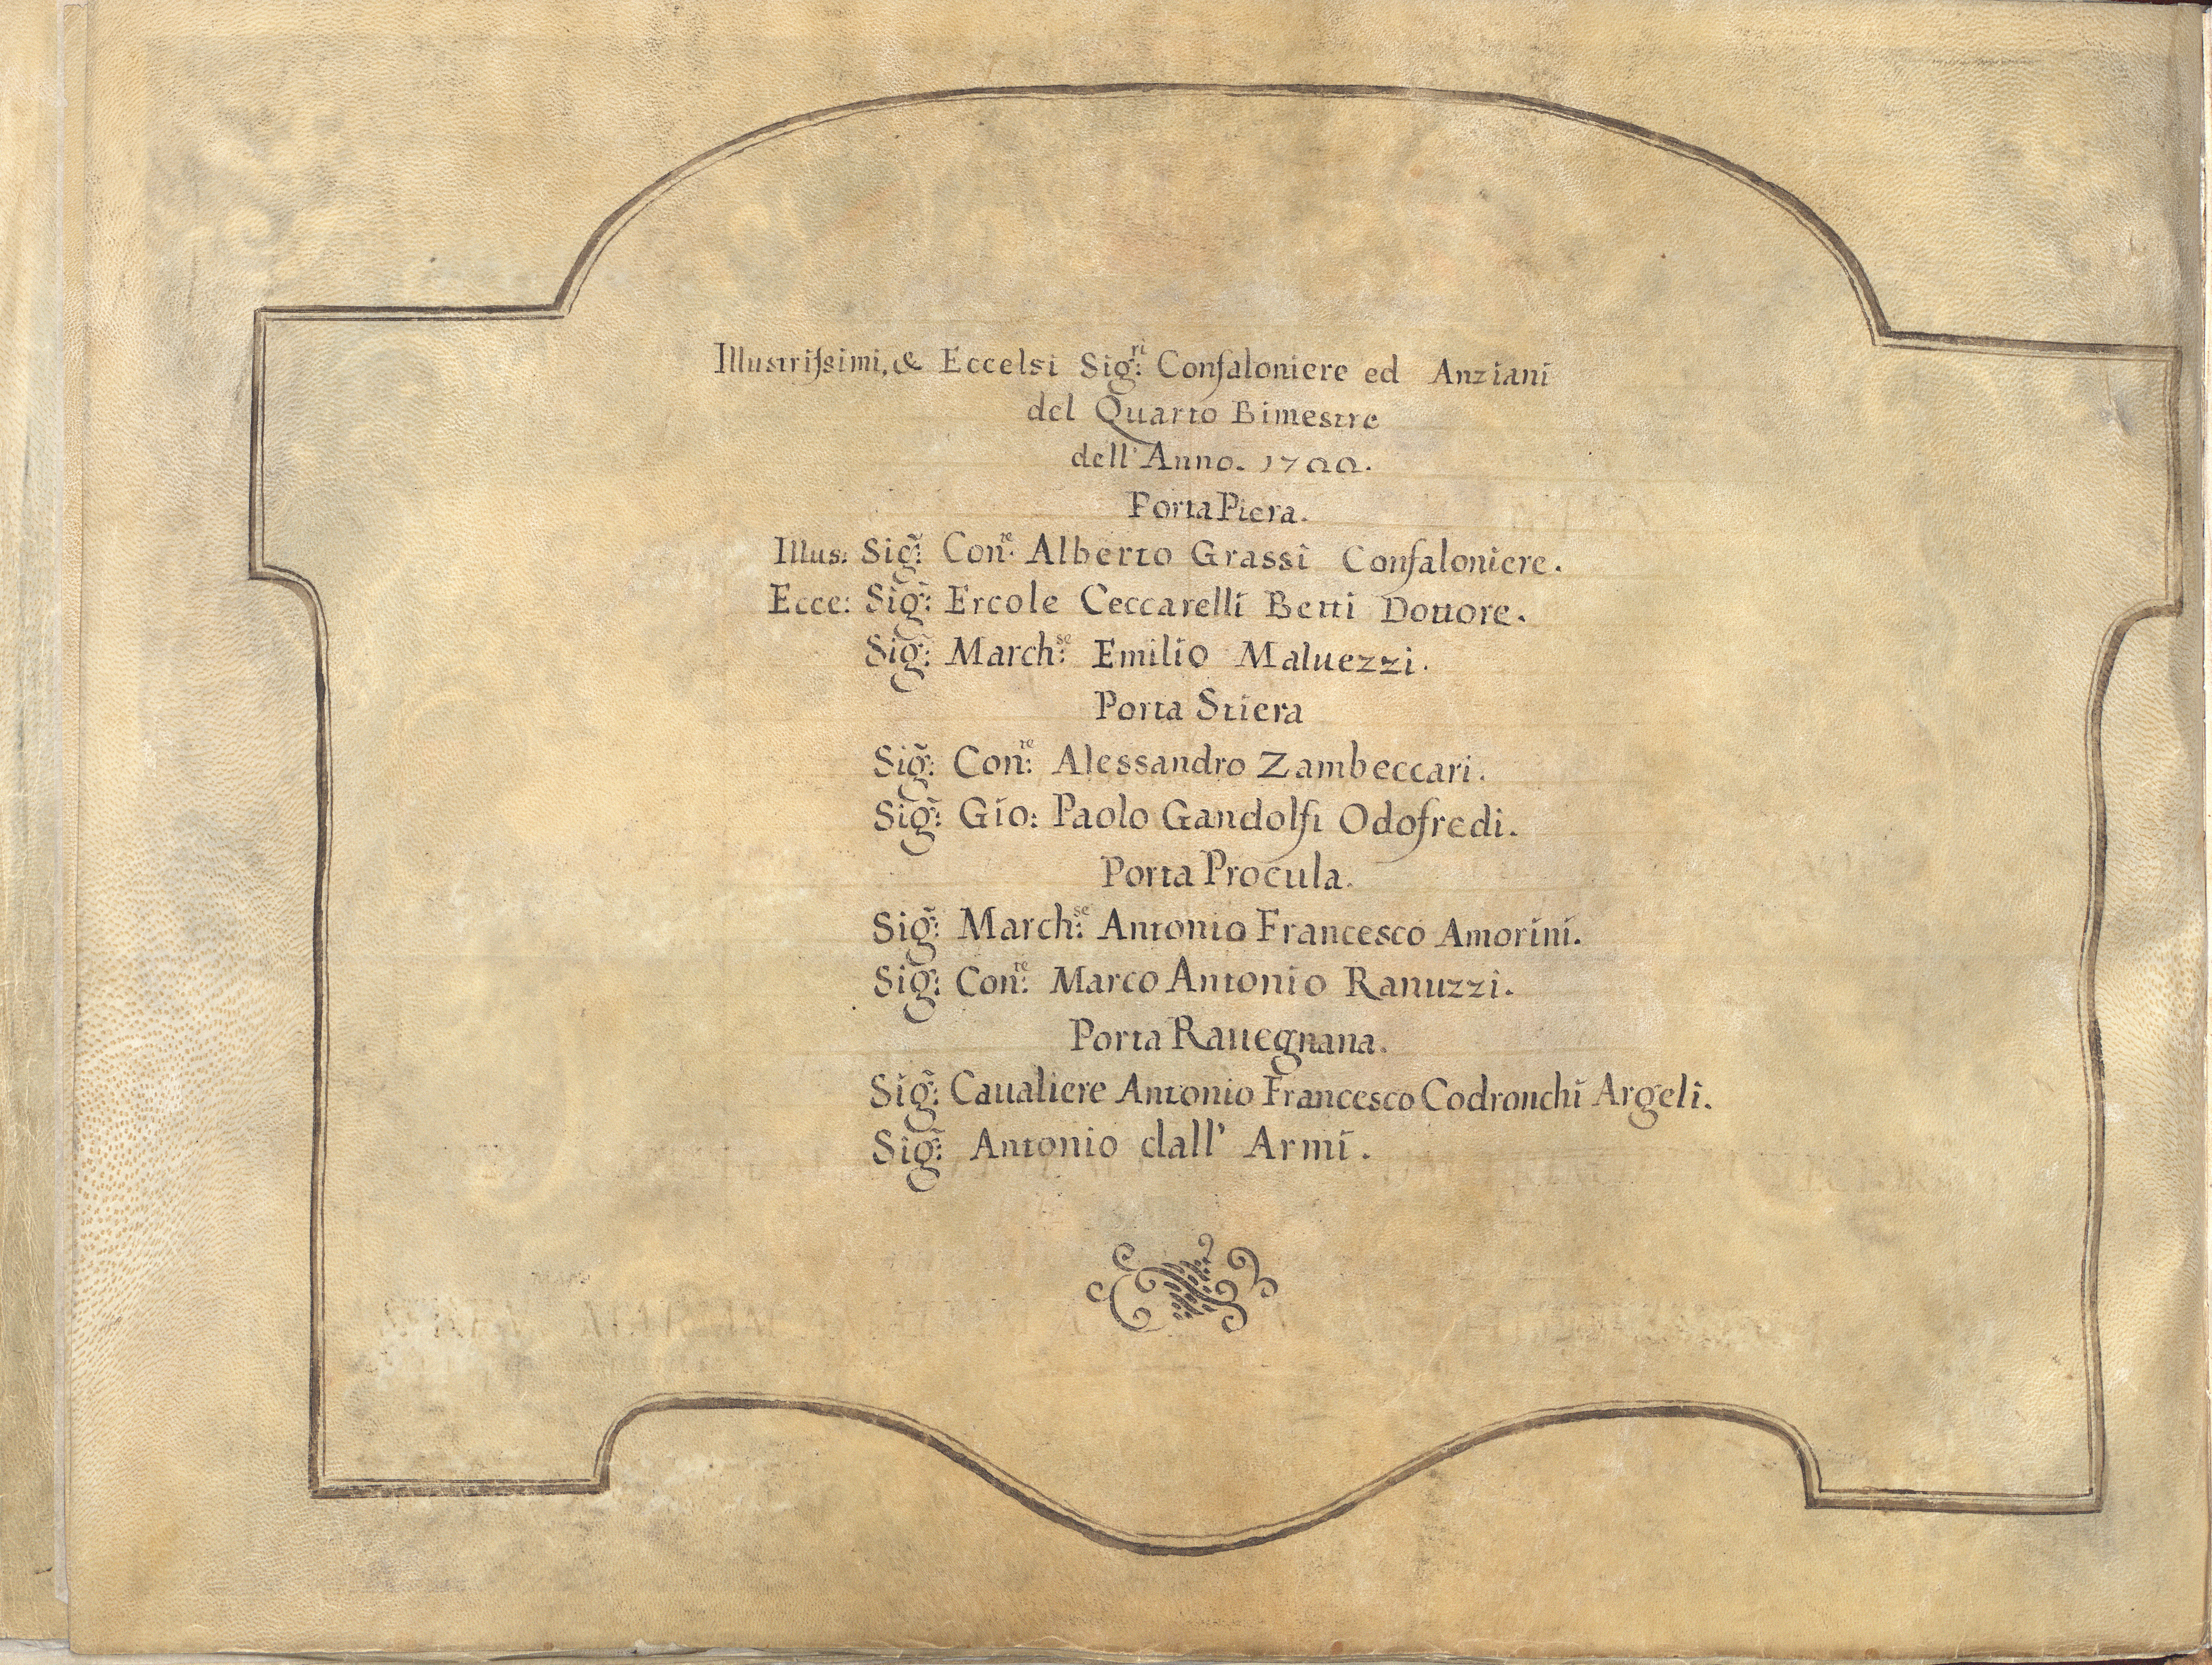 Illustrissimi, & Eccelsi Sig:ri Confaloniere ed Anziani
del Quarto Bimestre
dell'Anno. 1700.
Porta Piera.
Illus: Sig: Con:te Alberto Grassi Confaloniere.
Ecce: Sig: Ercole Ceccarelli Betti Dottore.
Sig: March:se Emilio Maluezzi.
Porta Stiera
Sig: Con:te Alessandro Zambeccari.
Sig: Gio: Paolo Gandolfi Odofredi.
Porta Procula.
Sig: March:se Antonio Francesco Amorini.
Sig: Con:te Marco Antonio Ranuzzi.
Porta Rauegnana.
Sig: Caualiere Antonio Francesco Codronchi Argeli.
Sig: Antonio dall' Armi.